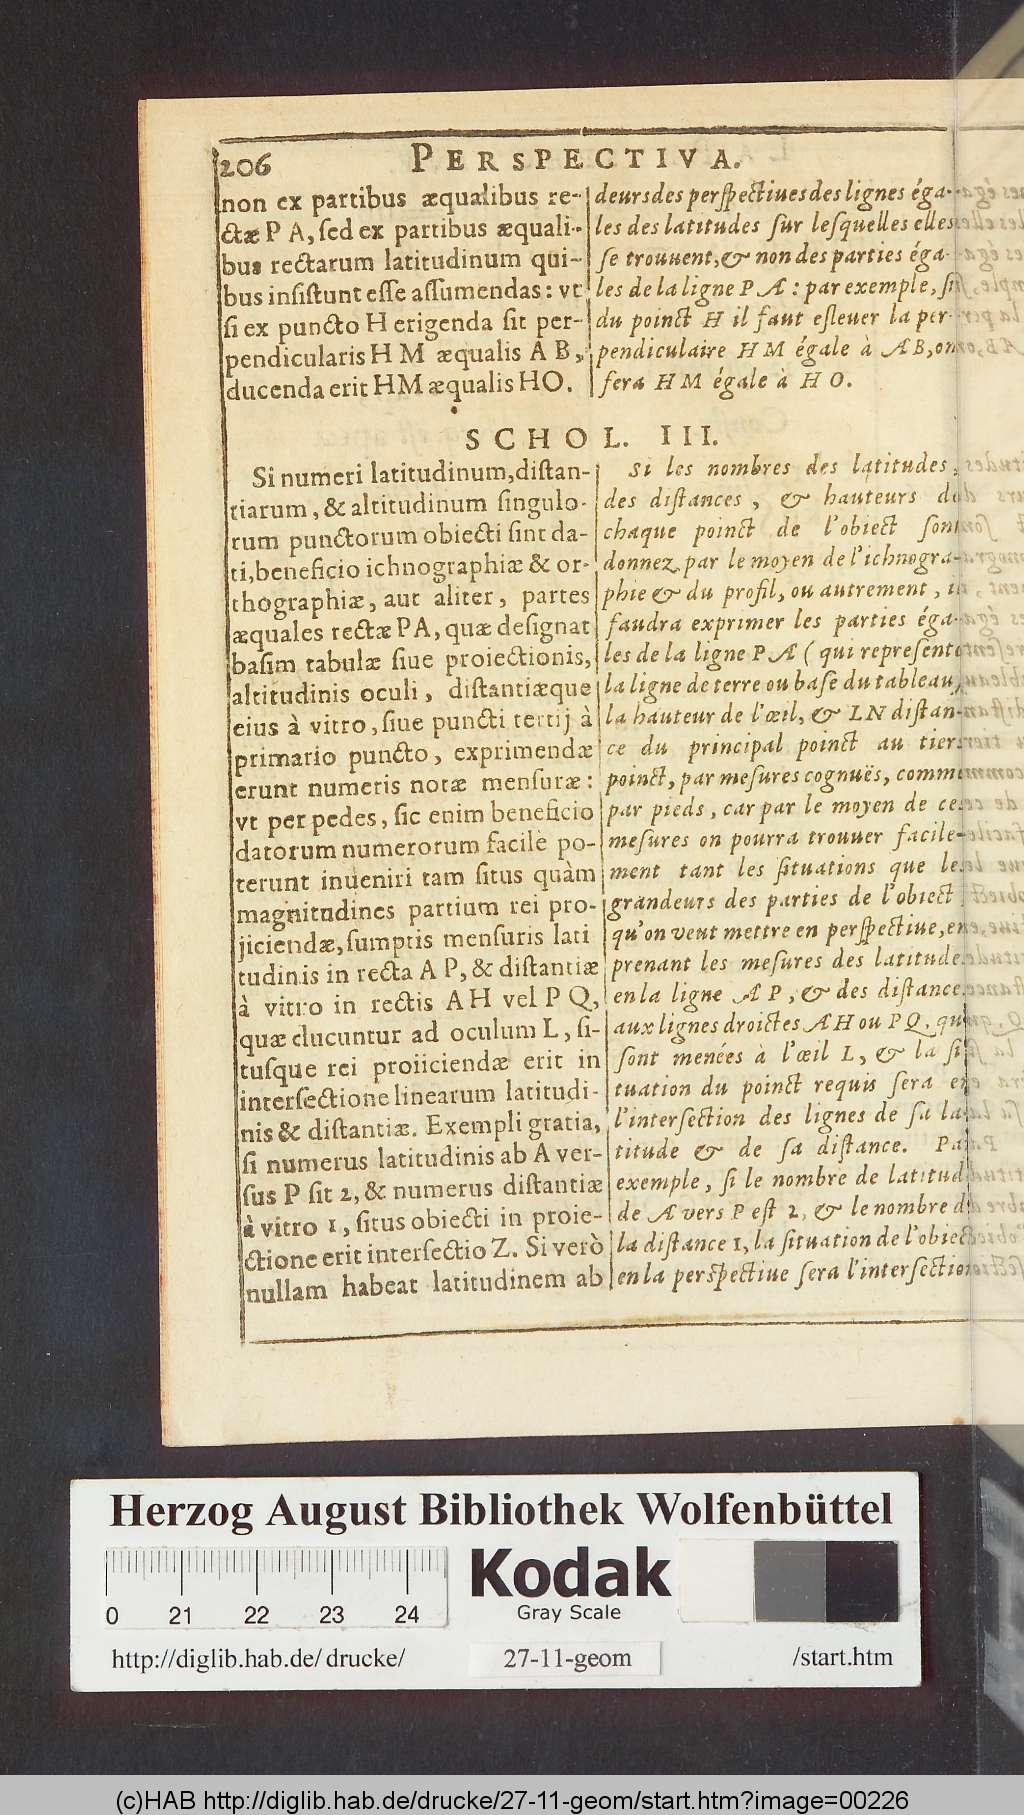 206 PERSPECTIVA.
non ex partibus æqualibus re-
ctæ P A, sed ex partibus æquali-
bus rectarum latitudinum qui-
bus insistunt esse assumendas: vt
si ex puncto H erigenda sit per-
pendicularis H M æqualis A B,
ducenda erit HM æqualis HO.
deurs des perspectiues des lignes éga-
les des latitudes sur lesquelles elles
se trouuent, & non des parties éga-
les de la ligne P A : par exemple, si
du poinct H il faut esleuer la per-
pendiculaire H M égale à AB, on
fera H M égale à H O.
SCHOL. III.
Si numeri latitudinum, distan-
tiarum, & altitudinum singulo-
rum punctorum obiecti sint da-
ti, beneficio ichnographiæ & or-
thographiæ, aut aliter, partes
æquales rectæ PA, quæ designat
basim tabulæ siue proiectionis,
altitudinis oculi, distantiæque
eius à vitro, siue puncti tertij à
primario puncto, exprimendæ
erunt numeris notæ mensuræ:
vt per pedes, sic enim beneficio
datorum numerorum facilè po-
terunt inueniri tam situs quàm
magnitudines partium rei pro-
jiciendæ, sumptis mensuris lati
tudinis in recta A P, & distantiæ
à vitro in rectis A H vel P Q,
quæ ducuntur ad oculum L, si-
tusque rei proiiciendæ erit in
intersectione linearum latitudi-
nis & distantiæ. Exempli gratia,
si numerus latitudinis ab A ver-
sus P sit 2, & numerus distantiæ
à vitro 1, situs obiecti in proie-
ctione erit intersectio Z. Si verò
nullam habeat latitudinem ab
Si les nombres des latitudes,
des distances, & hauteurs de
chaque poinct de l'obiect sont
donnez par le moyen de l'ichnogra-
phie & du profil, ou autrement, il
faudra exprimer les parties éga-
les de la ligne P A ( qui represente
la ligne de terre ou base du tableau,
la hauteur de l'œil, & LN distan-
ce du principal poinct au tiers
poinct, par mesures cognuës, comme
par pieds, car par le moyen de ces
mesures on pourra trouuer facile-
ment tant les situations que les
grandeurs des parties de l'obiect
qu'on veut mettre en perspectiue, en
prenant les mesures des latitudes
en la ligne AP, & des distances
aux lignes droictes AH ou PQ, qui
sont menées à l'œil L, & la si-
tuation du poinct requis sera en
l'intersection des lignes de sa la-
titude & de sa distance. Par
exemple, si le nombre de latitude
de A vers P est 2, & le nombre de
la distance 1, la situation de l'obiect
en la perspectiue sera l'intersection
Herzog August Bibliothek Wolfenbüttel
0 21 22 23 24
Kodak
Gray Scale
http://diglib.hab.de/ drucke/ 27-11-geom /start.htm
(c)HAB http://diglib.hab.de/drucke/27-11-geom/start.htm?image=00226